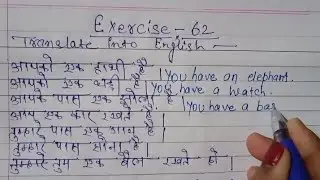 Exercise - 62
Translate into English -
आपको एक हाथी है | You have an elephant.
आपको एक घड़ी है | You have a watch.
आपके पास एक झोला है | You have a bas
आप एक कार रखते हैं |
तुम्हारे पास एक है |
तुम्हारे पास सोना है |
तुम एक बैल रखते हो |